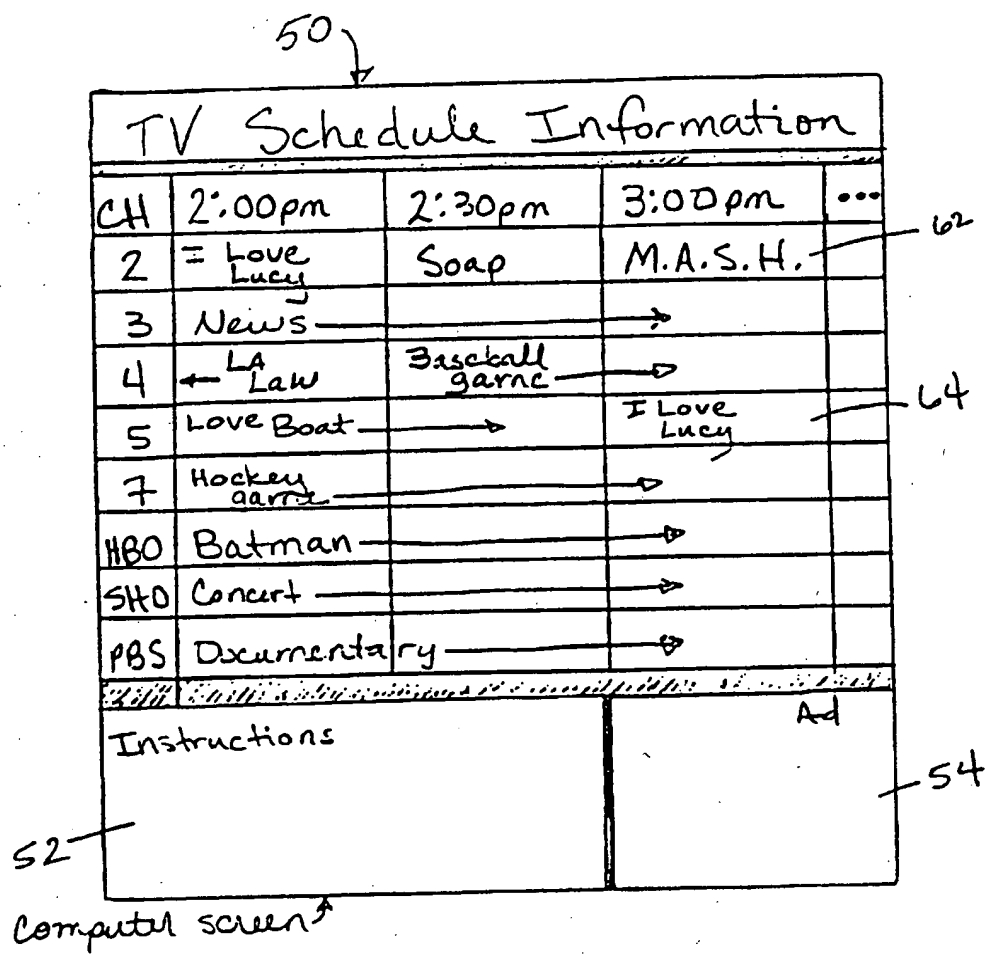 50
TV Schedule Information
CH 2:00pm 2:30pm 3:00pm •••
62
2 I Love Lucy Soap M.A.S.H.
3 News
4 LA Law Baseball game
64
5 Love Boat I Love Lucy
7 Hockey game
HBO Batman
SHO Concert
PBS Documentary
Ad
Instructions
54
52
Computer screen